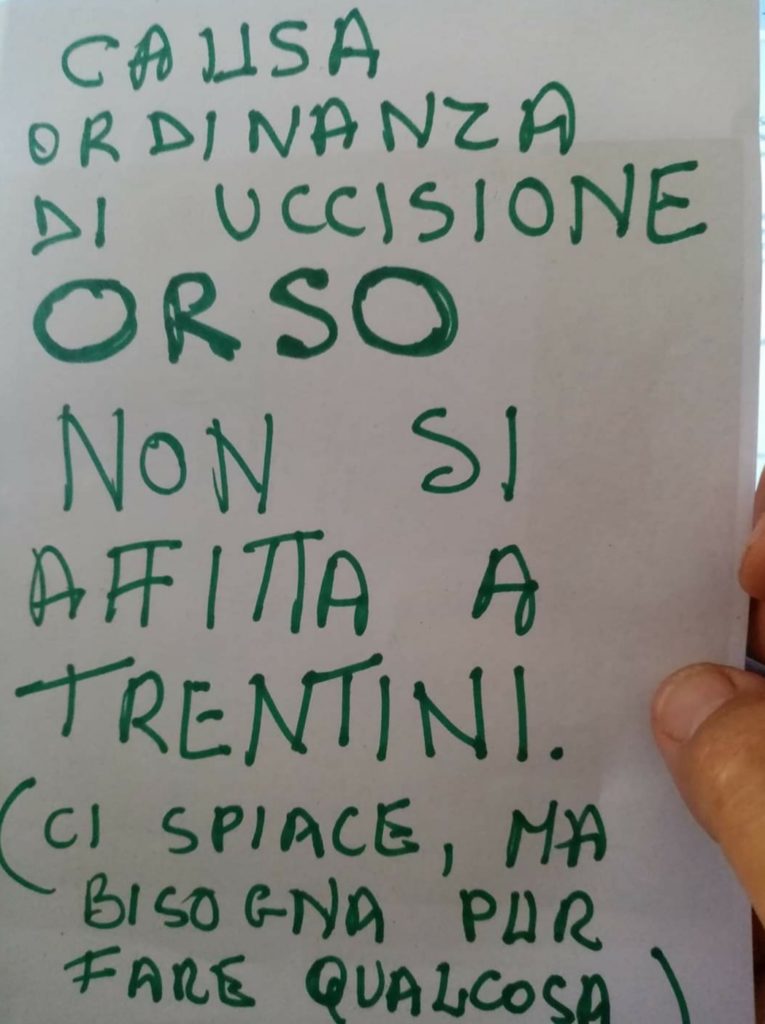 CAUSA
ORDINANZA
DI UCCISIONE
ORSO
NON SI
AFFITTA A
TRENTINI.
(CI SPIACE, MA
BISOGNA PUR
FARE QUALCOSA)